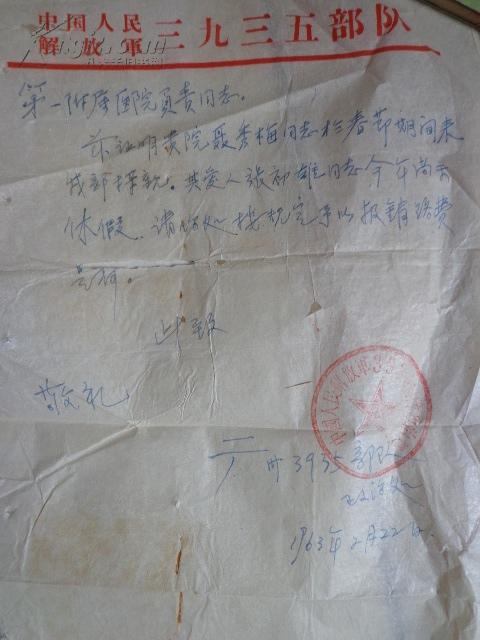 中国人民
解放軍 三九三五部队
第一附属医院负责同志。
兹证明贵院聂秀梅同志于春节期间来
我部探亲。其爱人张初雄同志今年尚未
休假。请你处按规定予以报销路费
是荷。
此致
敬礼
广州3935部队
政治处
1963年2月22日.